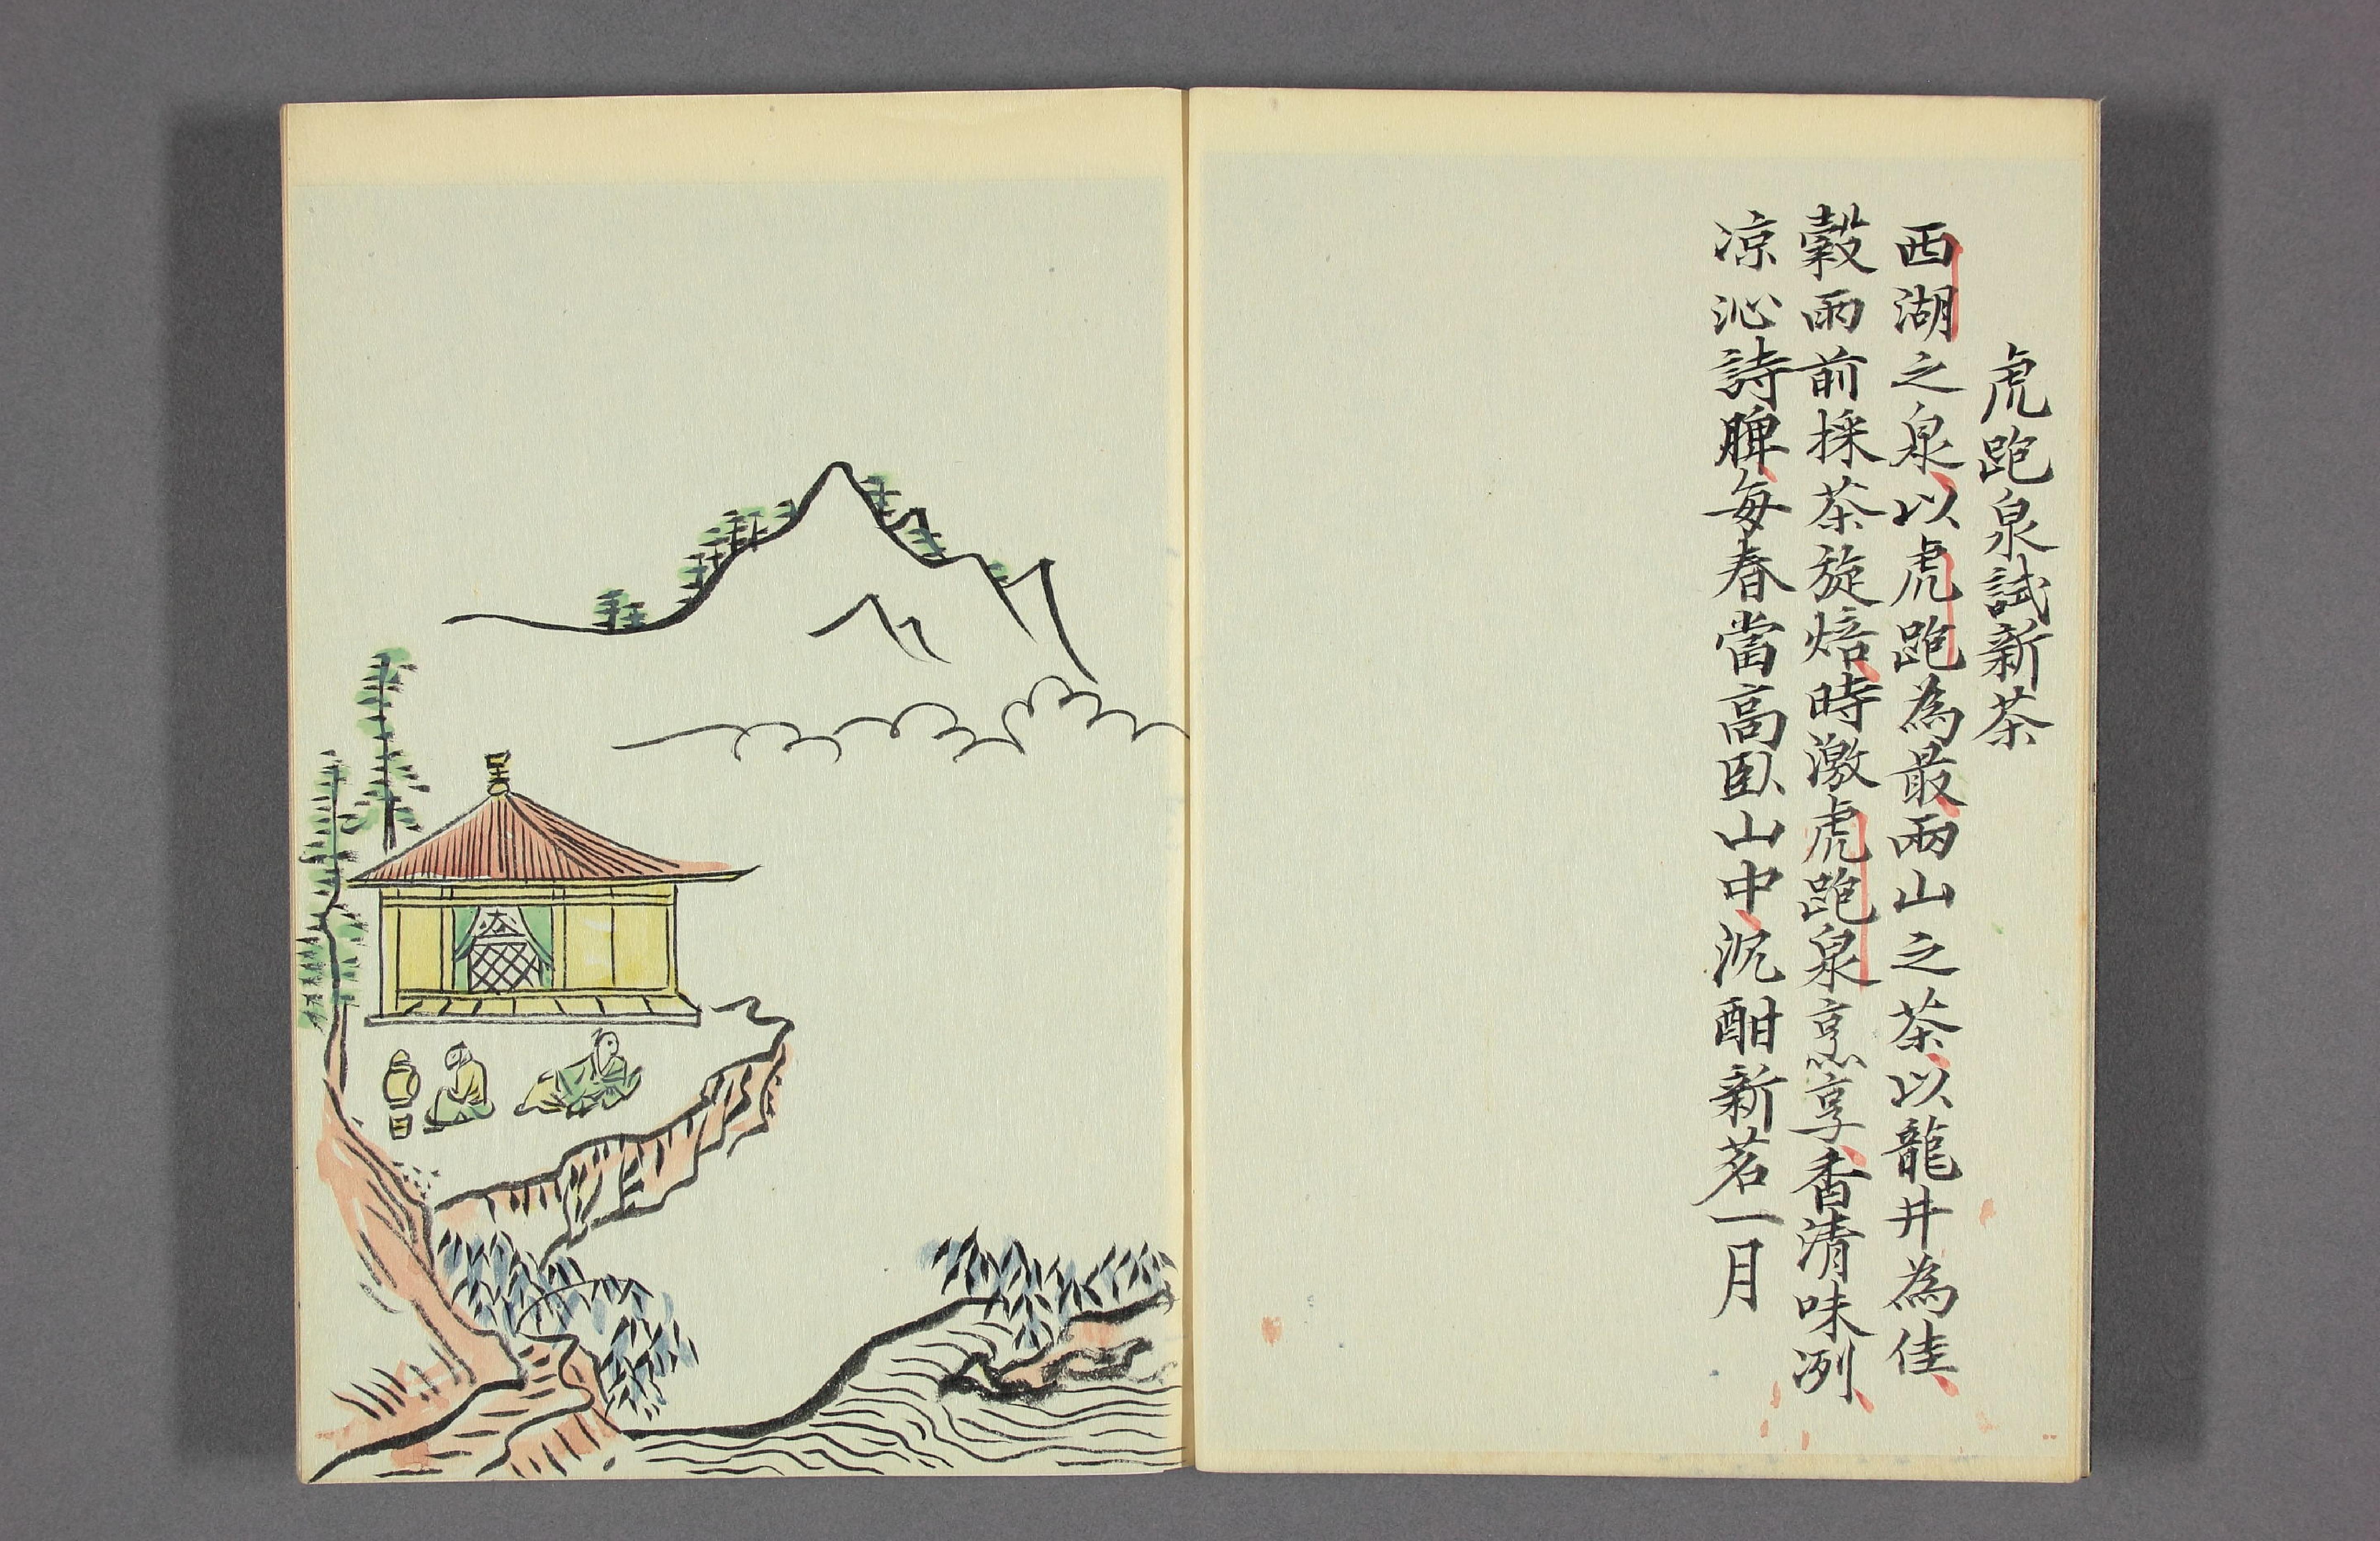 虎跑泉試新茶
西湖之泉以虎跑為最兩山之茶以龍井為佳
穀雨前採茶旋焙時激虎跑泉烹享香清味冽
凉沁詩脾每春當高臥山中沉酣新茗一月